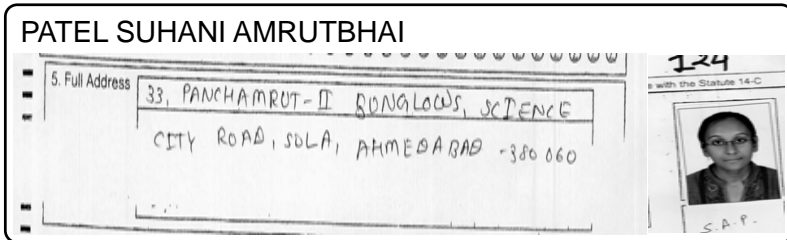 PATEL SUHANI AMRUTBHAI
5. Full Address
33, PANCHAMRUT-II BUNGLOWS, SCIENCE
CITY ROAD, SOLA, AHMEDABAD -380060
124
with the Statute 14-C
S.A.P.